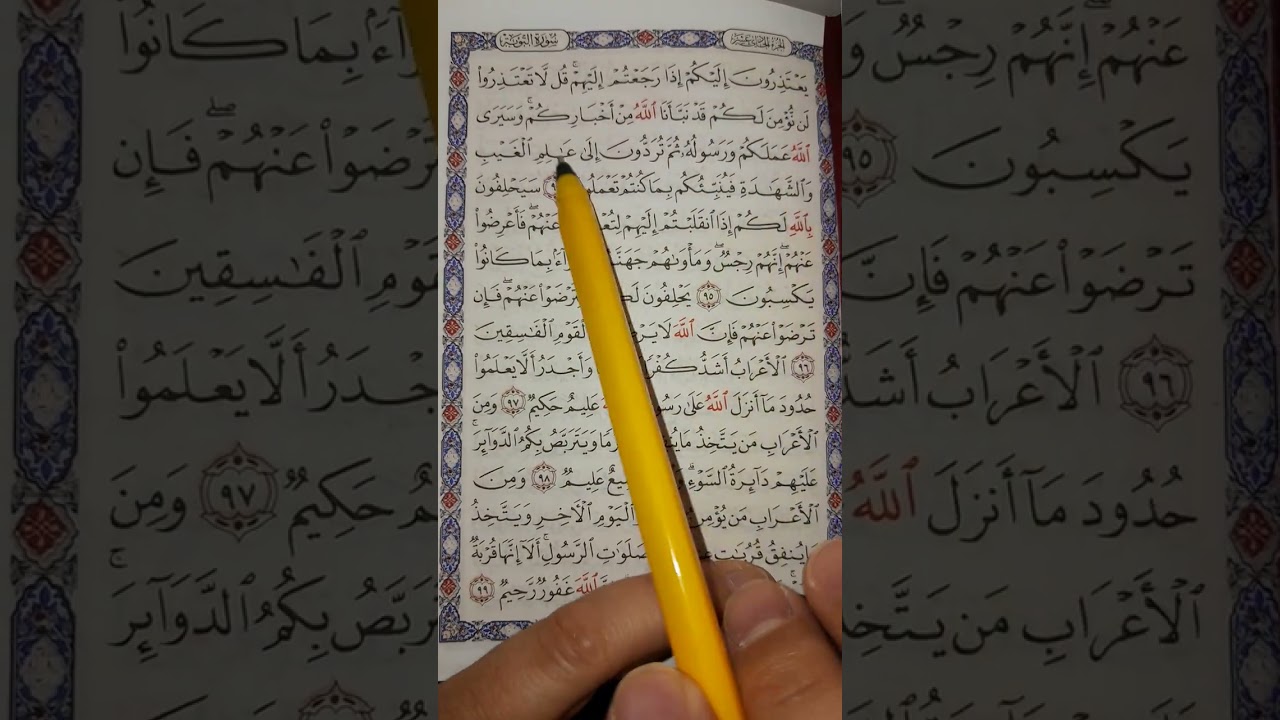 الجزء الحادي عشر
سورة التوبة
يَعْتَذِرُونَ إِلَيْكُمْ إِذَا رَجَعْتُمْ إِلَيْهِمْ ۚ قُل لَّا تَعْتَذِرُوا۟
لَن نُّؤْمِنَ لَكُمْ قَدْ نَبَّأَنَا ٱللَّهُ مِنْ أَخْبَارِكُمْ ۚ وَسَيَرَى
ٱللَّهُ عَمَلَكُمْ وَرَسُولُهُۥ ثُمَّ تُرَدُّونَ إِلَىٰ عَـٰلِمِ ٱلْغَيْبِ
وَٱلشَّهَـٰدَةِ فَيُنَبِّئُكُم بِمَا كُنتُمْ سَيَحْلِفُونَ
بِٱللَّهِ لَكُمْ إِذَا ٱنقَلَبْتُمْ إِلَيْهِمْ عَنْهُمْ ۖ فَأَعْرِضُوا۟
عَنْهُمْ ۖ إِنَّهُمْ رِجْسٌ ۖ وَمَأْوَىٰهُمْ بِمَا كَانُوا۟
يَكْسِبُونَ ٩٥ يَحْلِفُونَ عَنْهُمْ ۖ فَإِن
تَرْضَوْا۟ عَنْهُمْ فَإِنَّ ٱللَّهَ لَا ٱلْقَوْمِ ٱلْفَـٰسِقِينَ
٩٦ ٱلْأَعْرَابُ أَشَدُّ وَأَجْدَرُ أَلَّا يَعْلَمُوا۟
حُدُودَ مَآ أَنزَلَ ٱللَّهُ عَلَىٰ عَلِيمٌ حَكِيمٌ ٩٧ وَمِنَ
ٱلْأَعْرَابِ مَن يَتَّخِذُ مَا وَيَتَرَبَّصُ بِكُمُ ٱلدَّوَآئِرَ ۚ
عَلَيْهِمْ دَآئِرَةُ ٱلسَّوْءِ ۗ عَلِيمٌ ٩٨ وَمِنَ
ٱلْأَعْرَابِ مَن ٱلْيَوْمِ ٱلْـَٔاخِرِ وَيَتَّخِذُ
يُنفِقُ قُرُبَـٰتٍ ٱلرَّسُولِ ۚ أَلَآ إِنَّهَا قُرْبَةٌ
ٱللَّهَ غَفُورٌ رَّحِيمٌ ٩٩